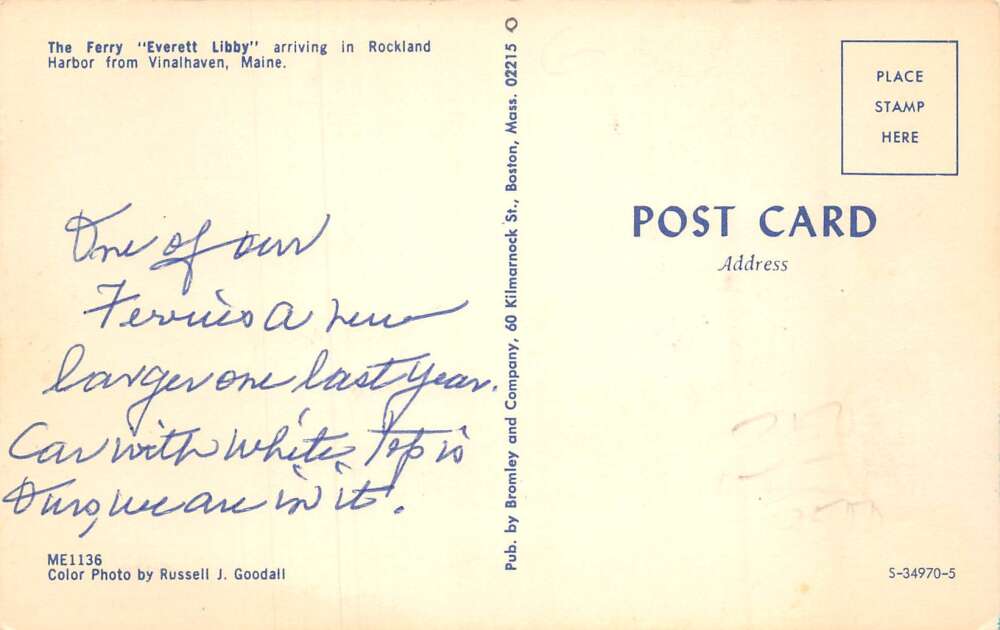 The Ferry "Everett Libby" arriving in Rockland
Harbor from Vinalhaven, Maine.
One of our
Ferries A new
larger one last year.
Car with white Top is
Ours, we are in it.
ME1136
Color Photo by Russell J. Goodall
Pub. by Bromley and Company, 60 Kilmarnock St., Boston, Mass. 02215
PLACE
STAMP
HERE
POST CARD
Address
S-34970-5